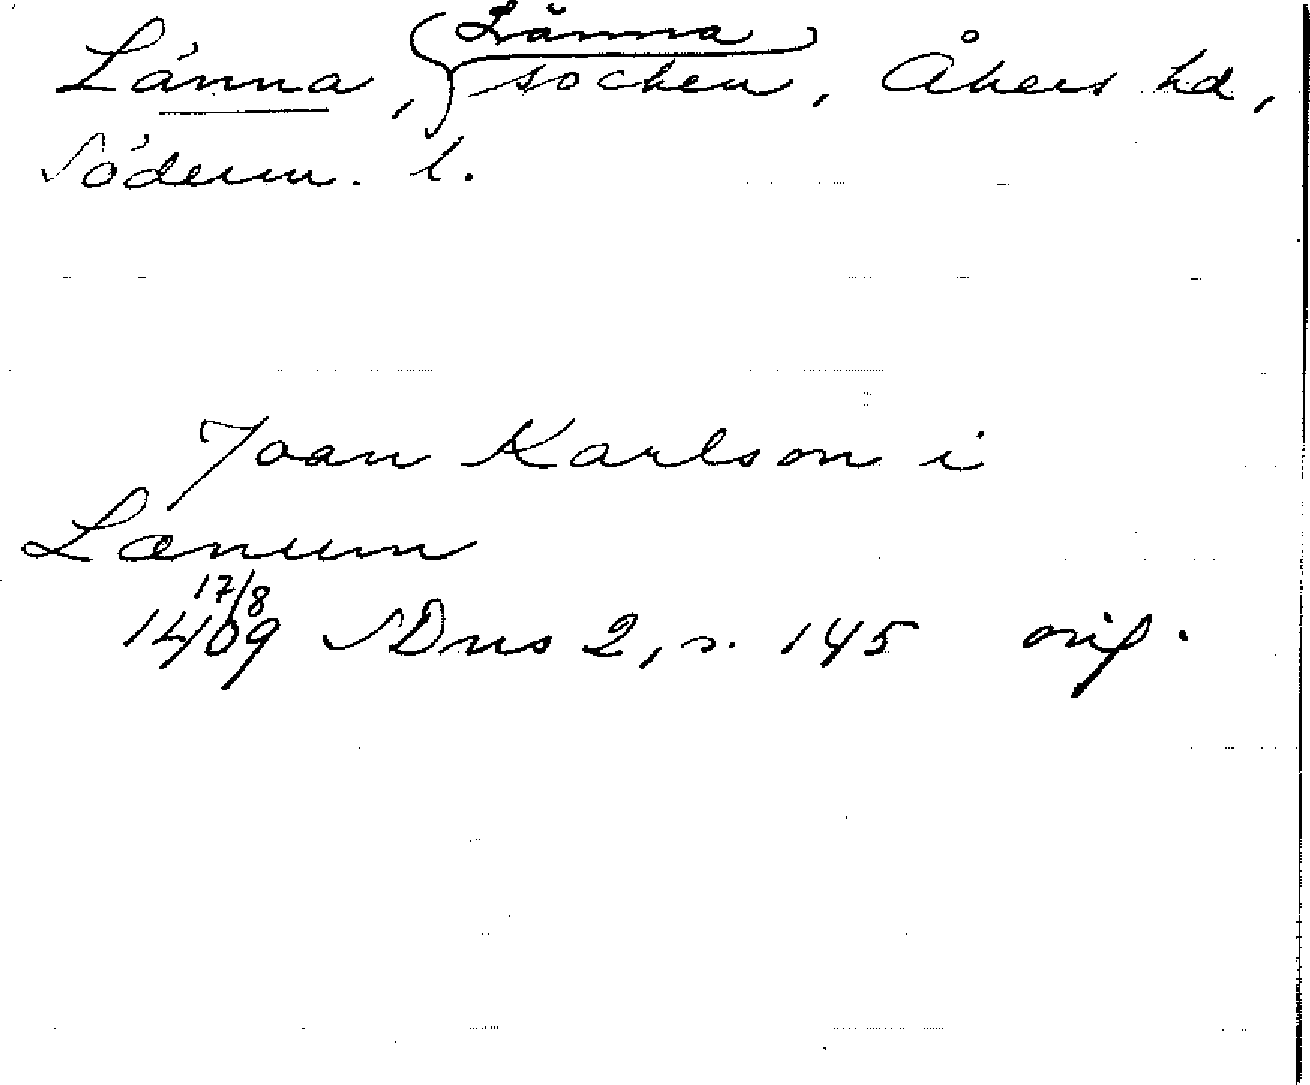 Länna
Länna, socken, Åkers hd,
Söderm. l.
Joan Karlson i
Lænum
17/8
1409 SDns 2, s. 145 orig.